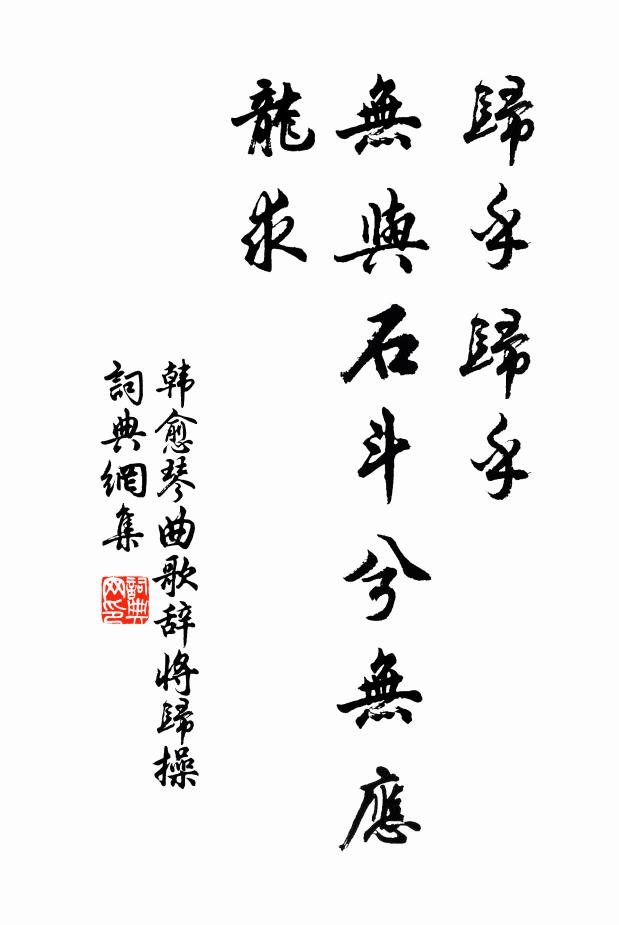 歸乎歸乎
無與石斗兮無應
龍求
韩愈琴曲歌辞將歸操
詞典網集
詞典
网印